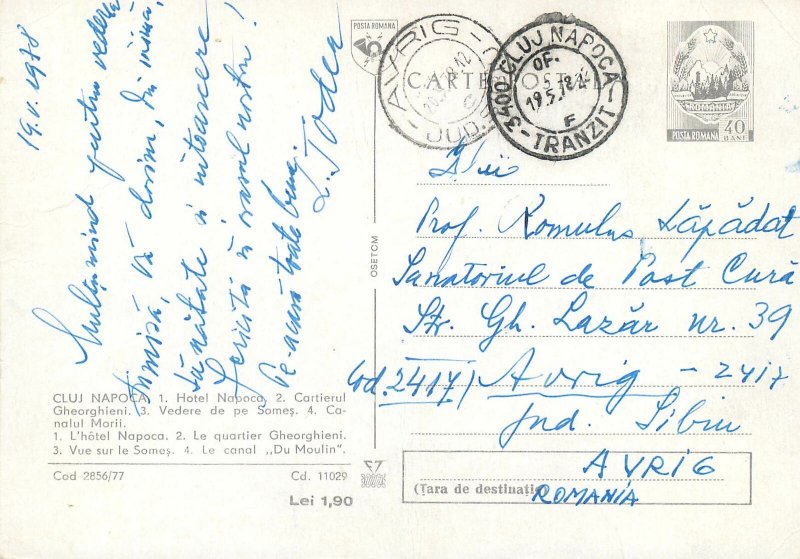 19.V.1978
Mulțumind pentru vederea
trimisă, vă dorim, din inimă,
sănătate și întoarcere
fericită în orașul nostru!
Pe-acasă toate bune.
L. Todea
CLUJ NAPOCA. 1. Hotel Napoca. 2. Cartierul
Gheorghieni. 3. Vedere de pe Someș. 4. Ca-
nalul Morii.
1. L'hôtel Napoca. 2. Le quartier Gheorghieni.
3. Vue sur le Someș. 4. Le canal „Du Moulin".
Cod 2856/77 Cd. 11029
Lei 1,90
OSETCM
POSTA ROMANA
CARTE POSTALA
AVRIG
JUD.
3400 CLUJ NAPOCA
OF.
19.5.78
F
TRANZIT
ROMANIA
POSTA ROMANA 40 BANI
D-lui
Prof. Romulus Lăpădat
Sanatoriul de Post Cură
Str. Gh. Lazăr nr. 39
Cod. 2417/ Avrig - 2417
Jud. Sibiu
AVRIG
(Țara de destinație)
ROMANIA